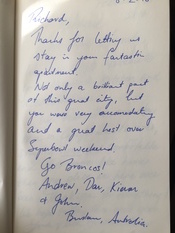 Richard,
Thanks for letting us
stay in your fantastic
apartment.
Not only a brilliant part
of this great city, but
you were very accomodating
and a great host over
Superbowl weekend.
Go Broncos!
Andrew, Dan, Kieran
& John.
Australia.